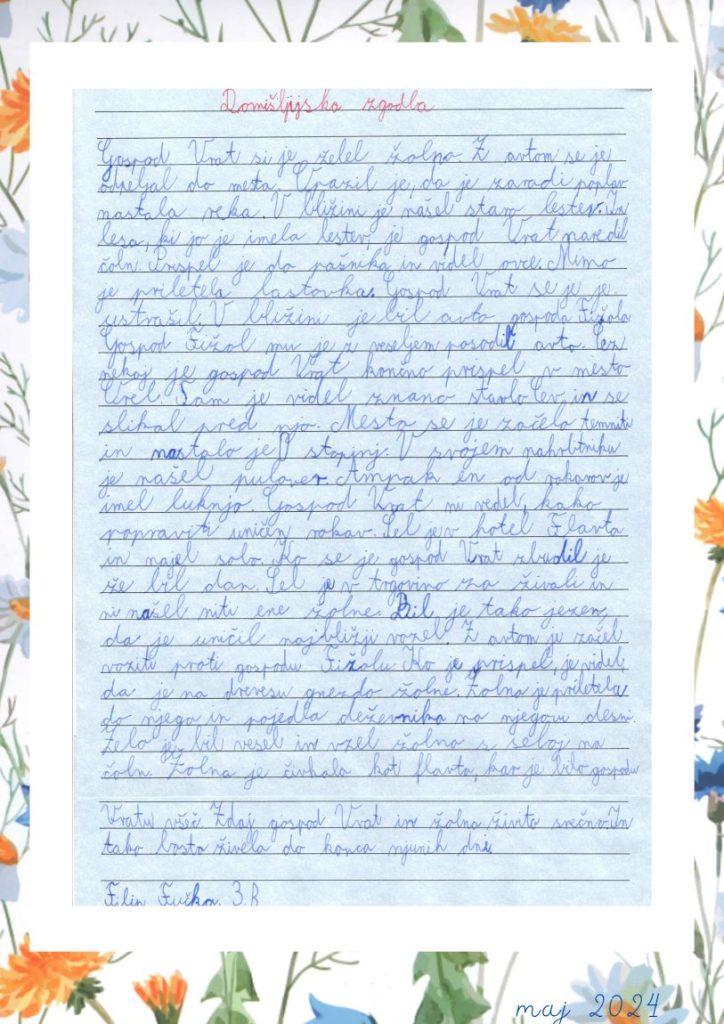 Domišljijska zgodba
Gospod Vrat si je želel žolno. Z avtom se je
odpeljal do mesta. Opazil je, da je zaradi poplav
nastala reka. V bližini je našel staro lestev. Iz
lesa, ki jo je imela lestev, je gospod Vrat naredil
čoln. Prispel je do pašnika in videl ovce. Mimo
je priletela lastovka. Gospod Vrat se je je
ustrašil. V bližini je bil avto gospoda Fižola
Gospod Fižol mu je z veseljem posodil avto. Čez
nekaj je gospod Vrat končno prispel v mesto
Orel. Tam je videl znano stavbo Lev, in se
slikal pred njo. Mesto se je začelo temniti
in nastalo je 0 stopinj. V svojem nahrbtniku
je našel pulover. Ampak en od rokavov je
imel luknjo. Gospod Vrat ni vedel, kako
popraviti uničen rokav. Šel je v hotel Flavta
in najel sobo. Ko se je gospod Vrat zbudil je
že bil dan. Šel je v trgovino za živali in
ni našel niti ene žolne. Bil je tako jezen,
da je uničil najbližji vozel. Z avtom je začel
voziti proti gospodu Fižolu. Ko je prispel, je videl,
da je na drevesu gnezdo žolne. Žolna je priletela
do njega in pojedla deževnika na njegovi desni.
Zelo je bil vesel in vzel žolno s seboj na
čoln. Žolna je čivkala kot flavta, kar je bilo gospodu
Vratu všeč. Zdaj gospod Vrat in žolna živita srečno. In
tako bosta živela do konca njunih dni.
Filip Fučka. 3. B
maj 2024